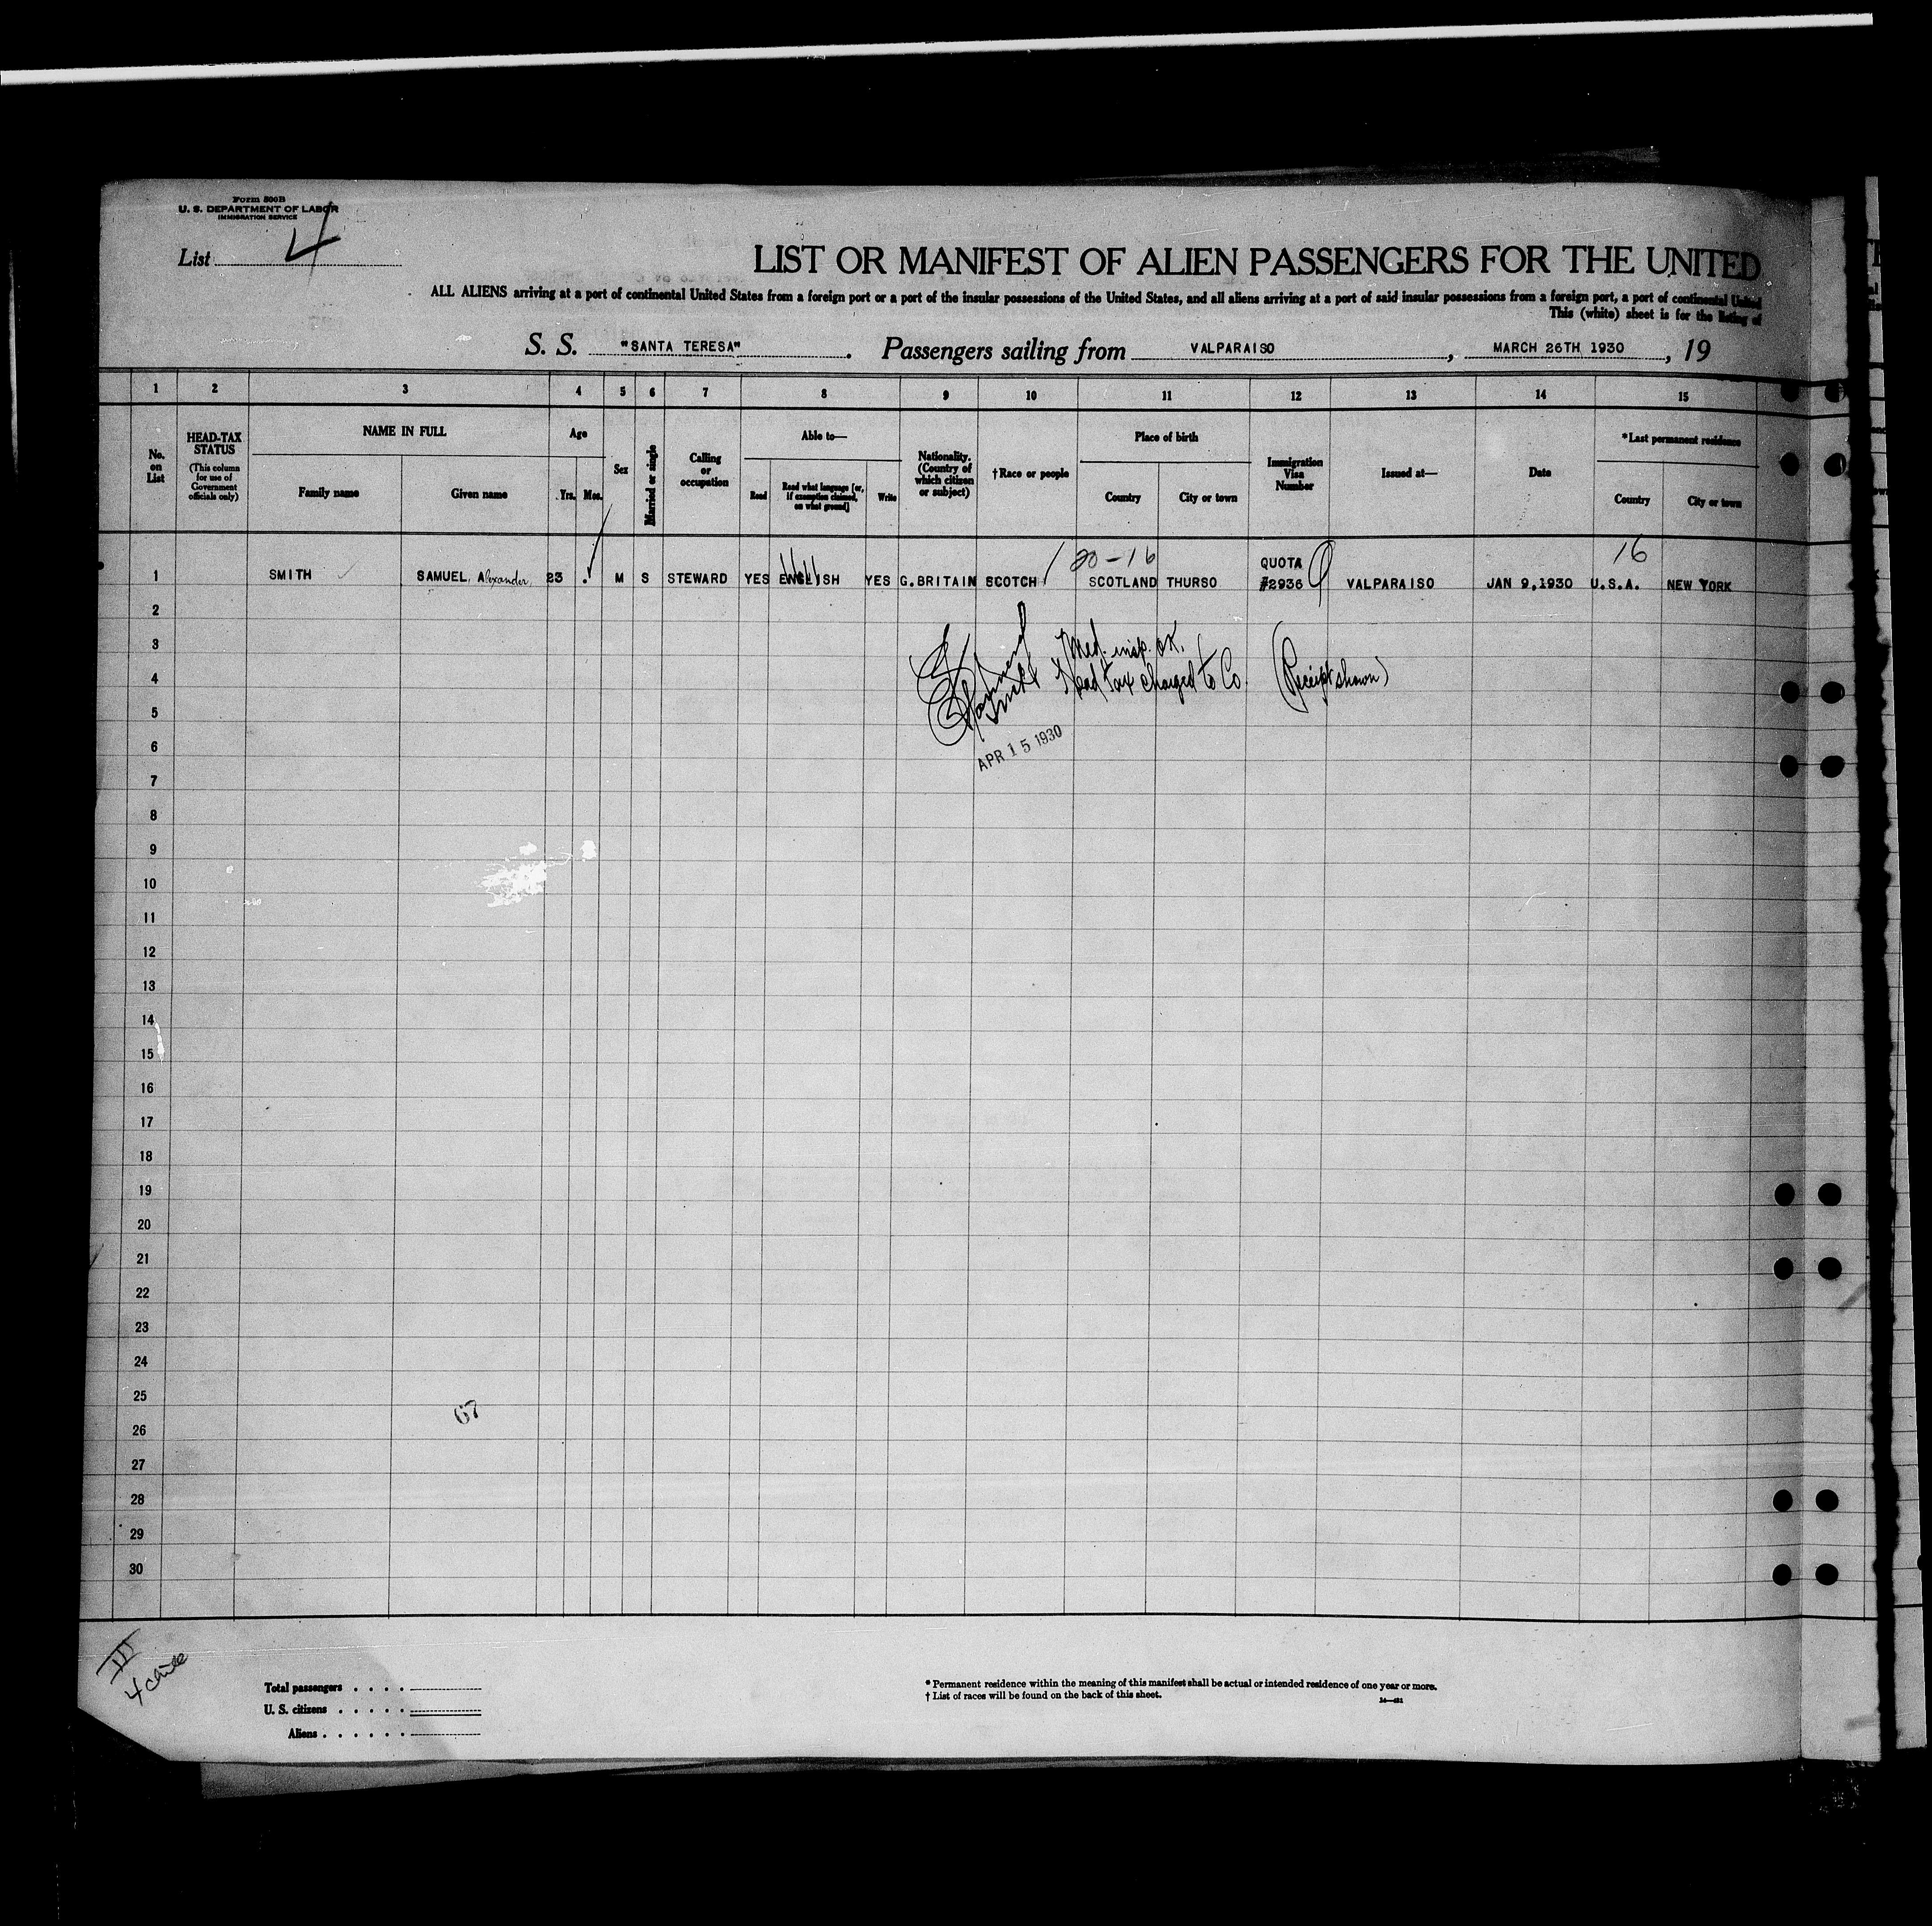 Form 500B
U. S. DEPARTMENT OF LABOR
IMMIGRATION SERVICE
List 4
LIST OR MANIFEST OF ALIEN PASSENGERS FOR THE UNITED
ALL ALIENS arriving at a port of continental United States from a foreign port or a port of the insular possessions of the United States, and all aliens arriving at a port of said insular possessions from a foreign port, a port of continental United
This (white) sheet is for the listing of
S. S. "SANTA TERESA". Passengers sailing from VALPARAISO, MARCH 26TH 1930, 19
1 2 3 4 5 6 7 8 9 10 11 12 13 14 15
No. on List
HEAD-TAX STATUS
(This column for use of Government officials only)
NAME IN FULL
Family name
Given name
Age
Yrs. Mos.
Sex
Married or single
Calling or occupation
Able to—
Read
Read what language [or, if exemption claimed, on what ground]
Write
Nationality. (Country of which citizen or subject)
†Race or people
Place of birth
Country
City or town
Immigration Visa Number
Issued at—
Date
*Last permanent residence
Country
City or town
20-16
16
QUOTA
1 SMITH SAMUEL, Alexander 23 M S STEWARD YES ENGLISH YES G.BRITAIN SCOTCH SCOTLAND THURSO #2936 VALPARAISO JAN 9,1930 U.S.A. NEW YORK
2
3
Med. insp. OK.
4
Head Tax charged to Co. (Receipt shown)
5
6
APR 15 1930
7
8
9
10
11
12
13
14
15
16
17
18
19
20
21
22
23
24
25
67
26
27
28
29
30
III
4
Total passengers . . . .
U. S. citizens . . . . .
Aliens . . . . . .
* Permanent residence within the meaning of this manifest shall be actual or intended residence of one year or more.
† List of races will be found on the back of this sheet.